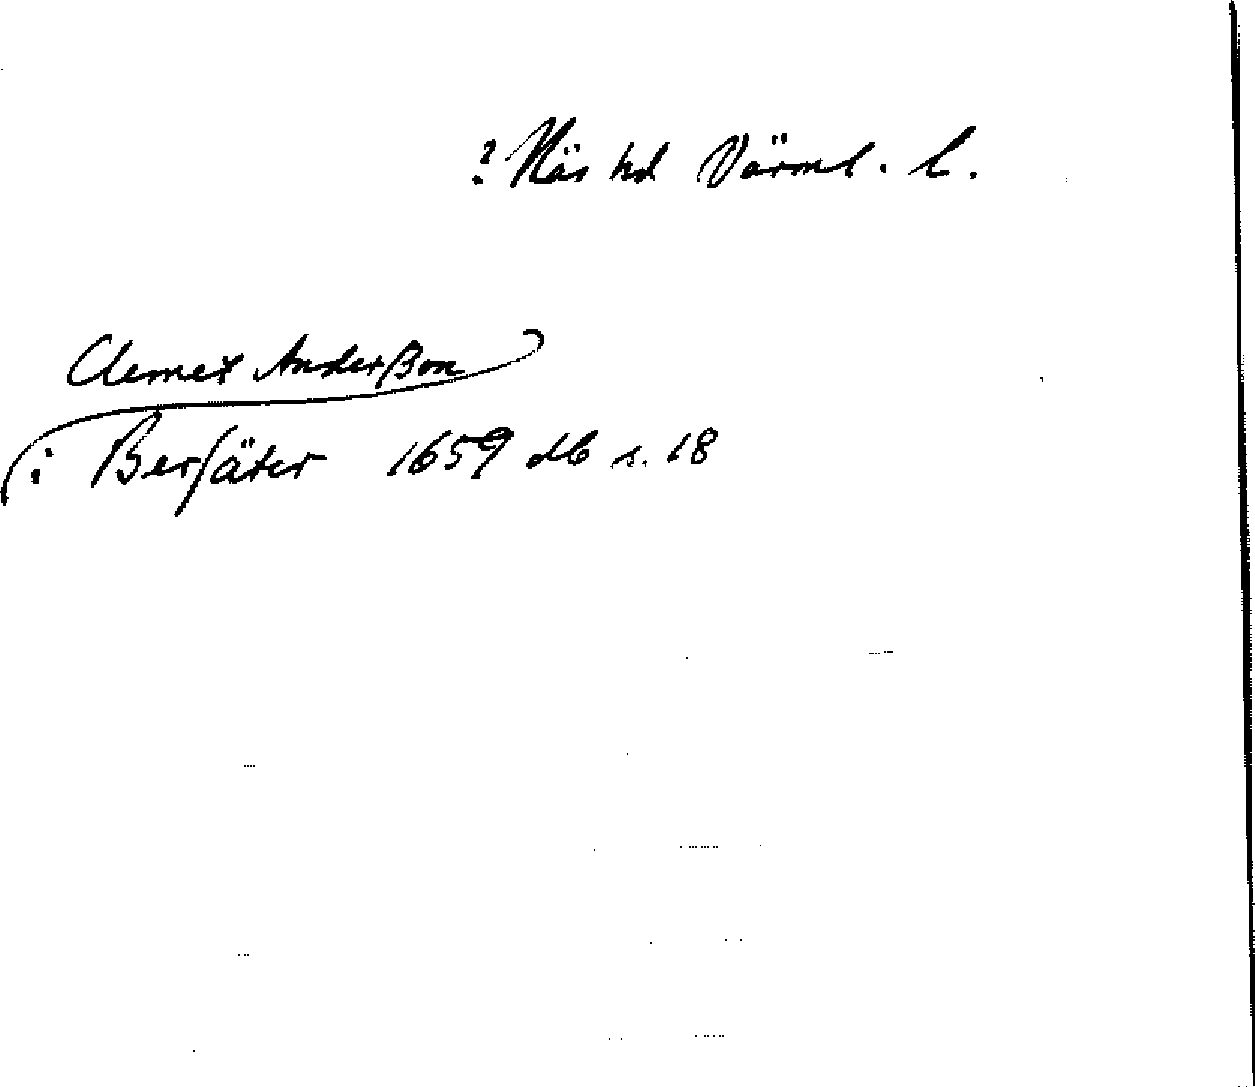 ? Näs hd Värml. l.
Clemet Anderßon
i Bersäter 1659 db s. 18